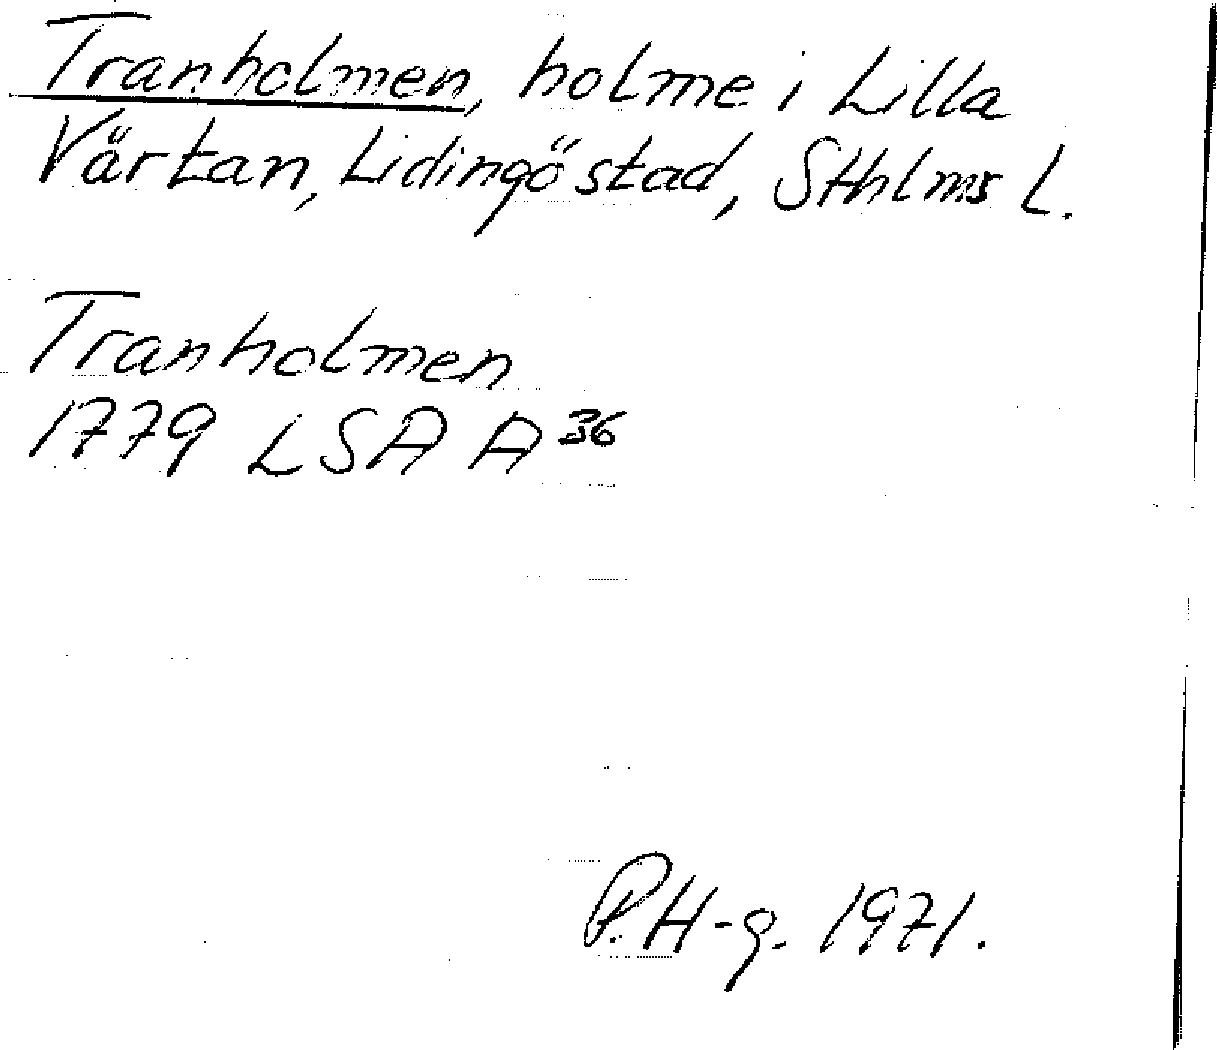 Tranholmen, holme i Lilla
Värtan, Lidingö stad, Sthlms l.
Tranholmen
1779 LSA A 36
P.H-g. 1971.